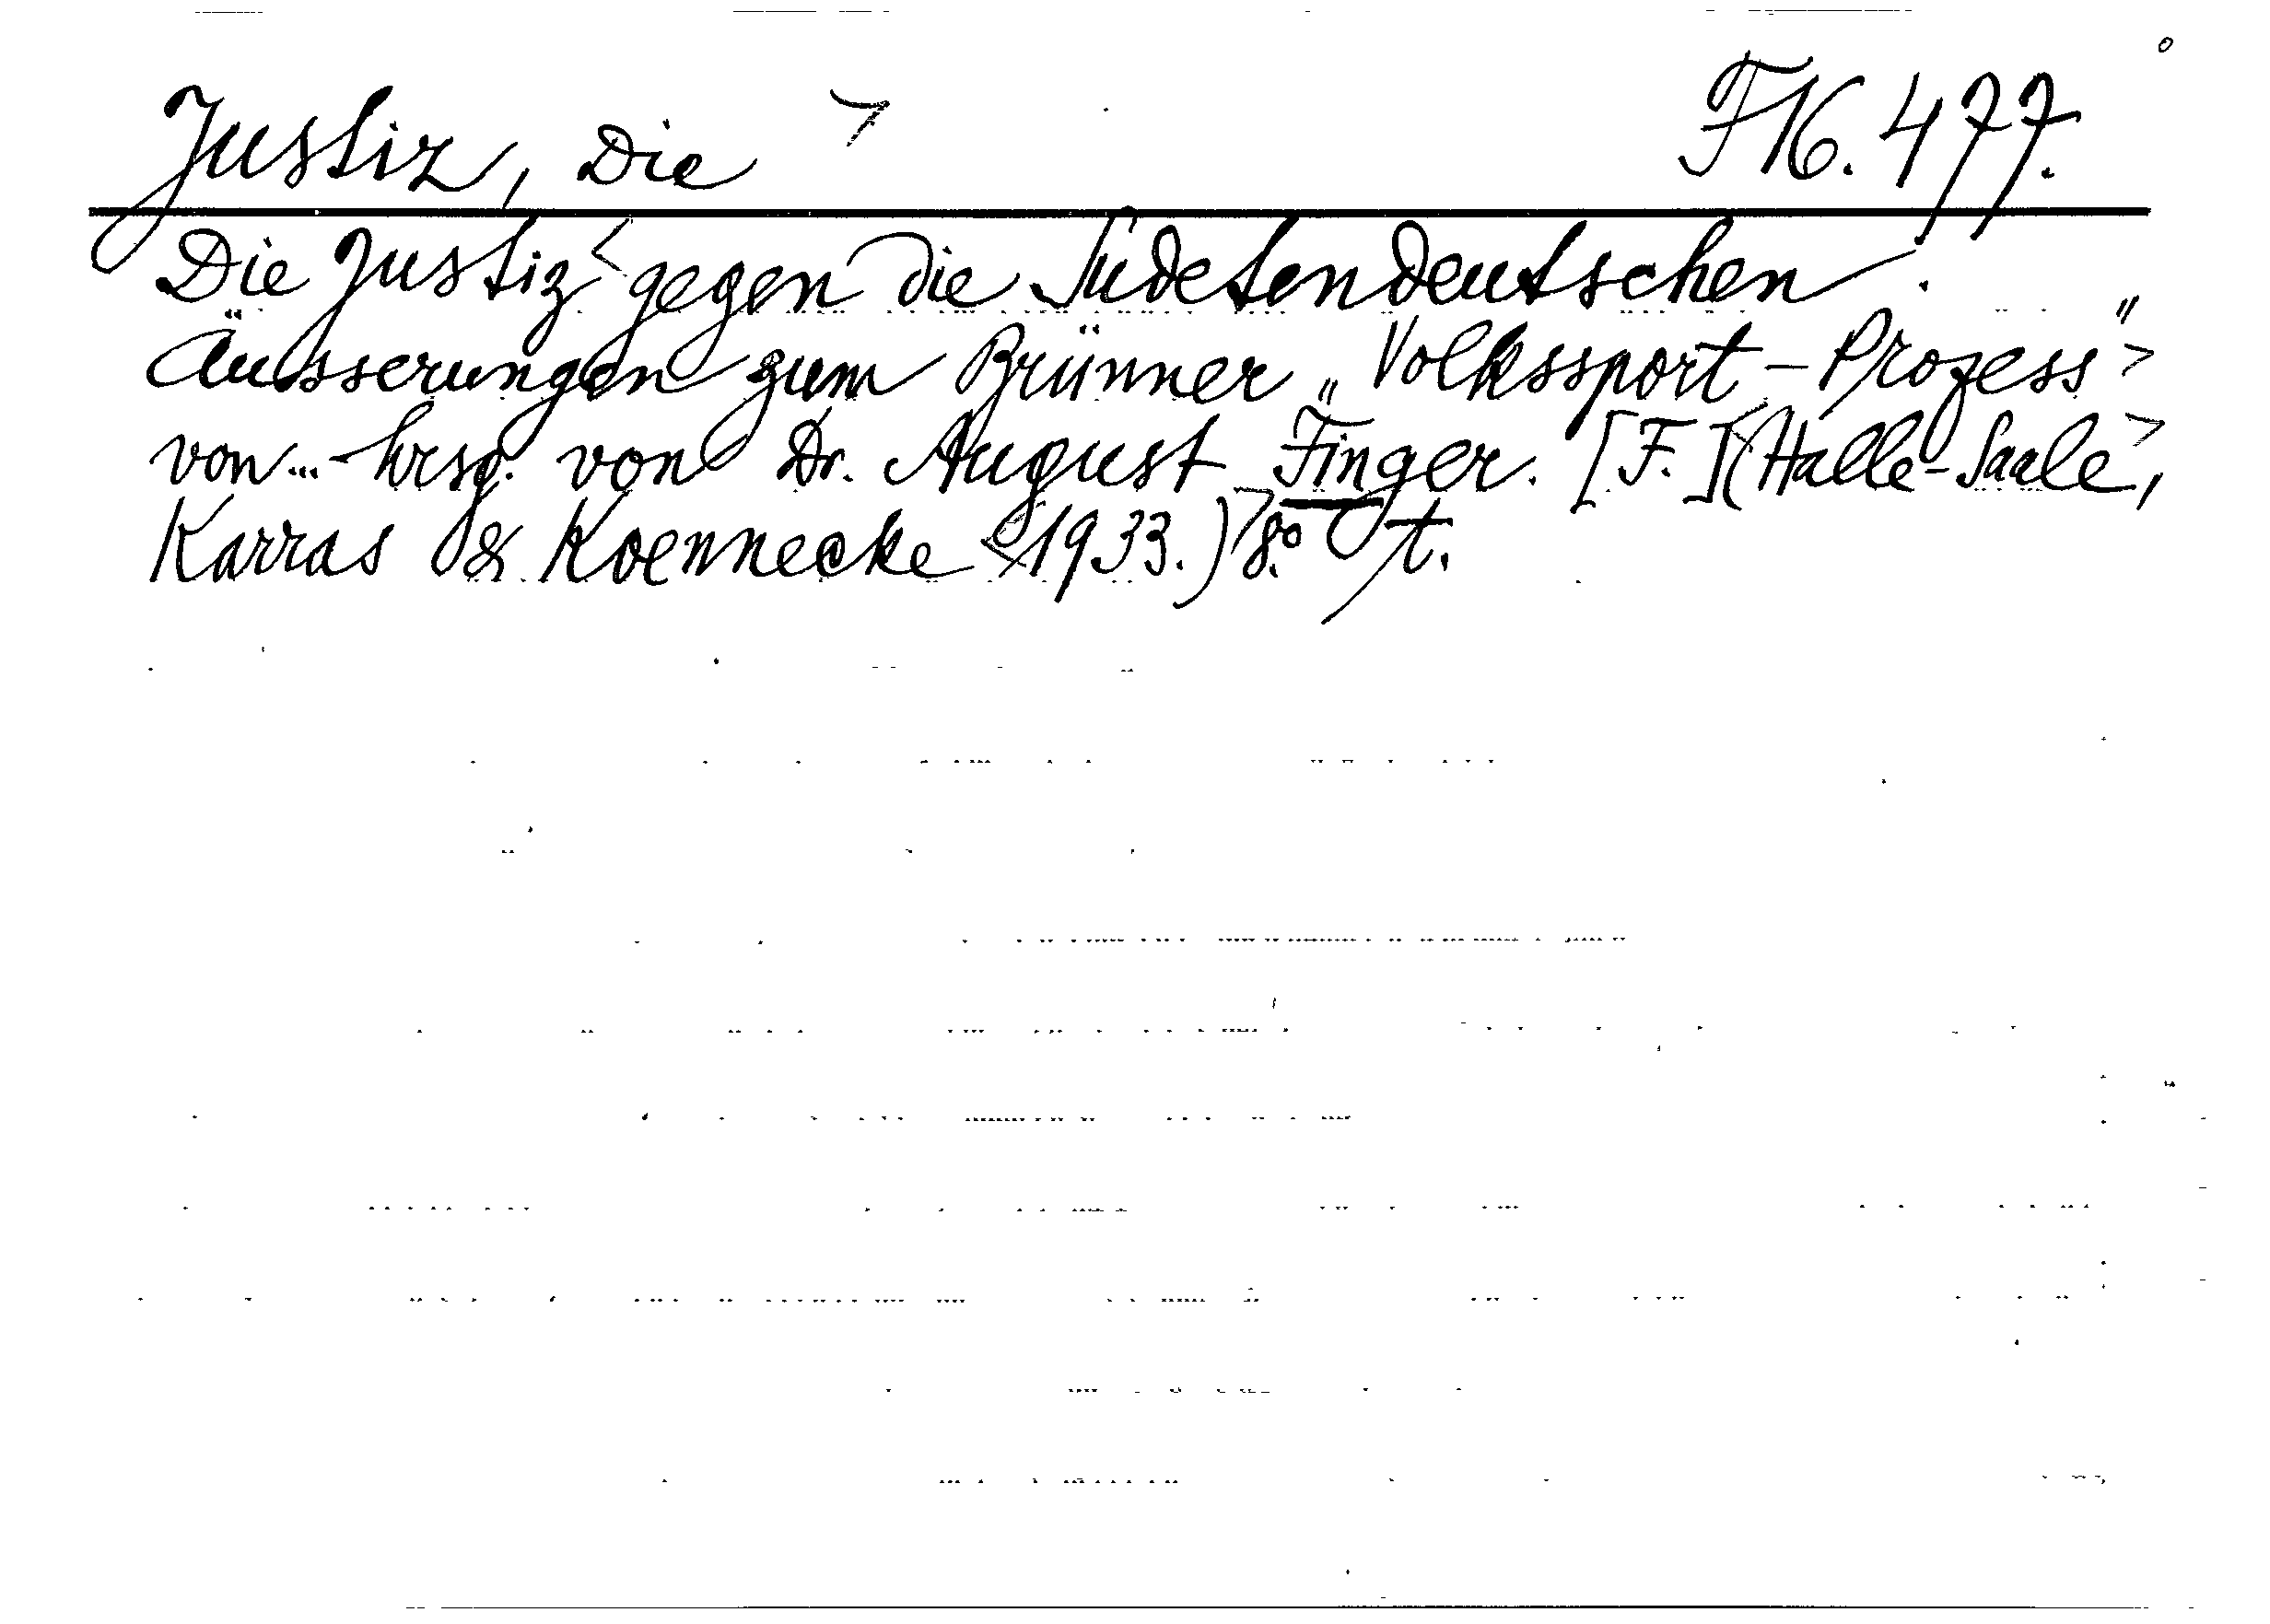 Justiz, Die FK. 477.
Die Justiz gegen die Sudetendeutschen.
Äusserungen zum Brünner „Volkssport-Prozess"
von...- hrsg. von Dr. August Finger. [F.] (Halle-Saale,
Karras & Koennecke 1933.) 8.° t.